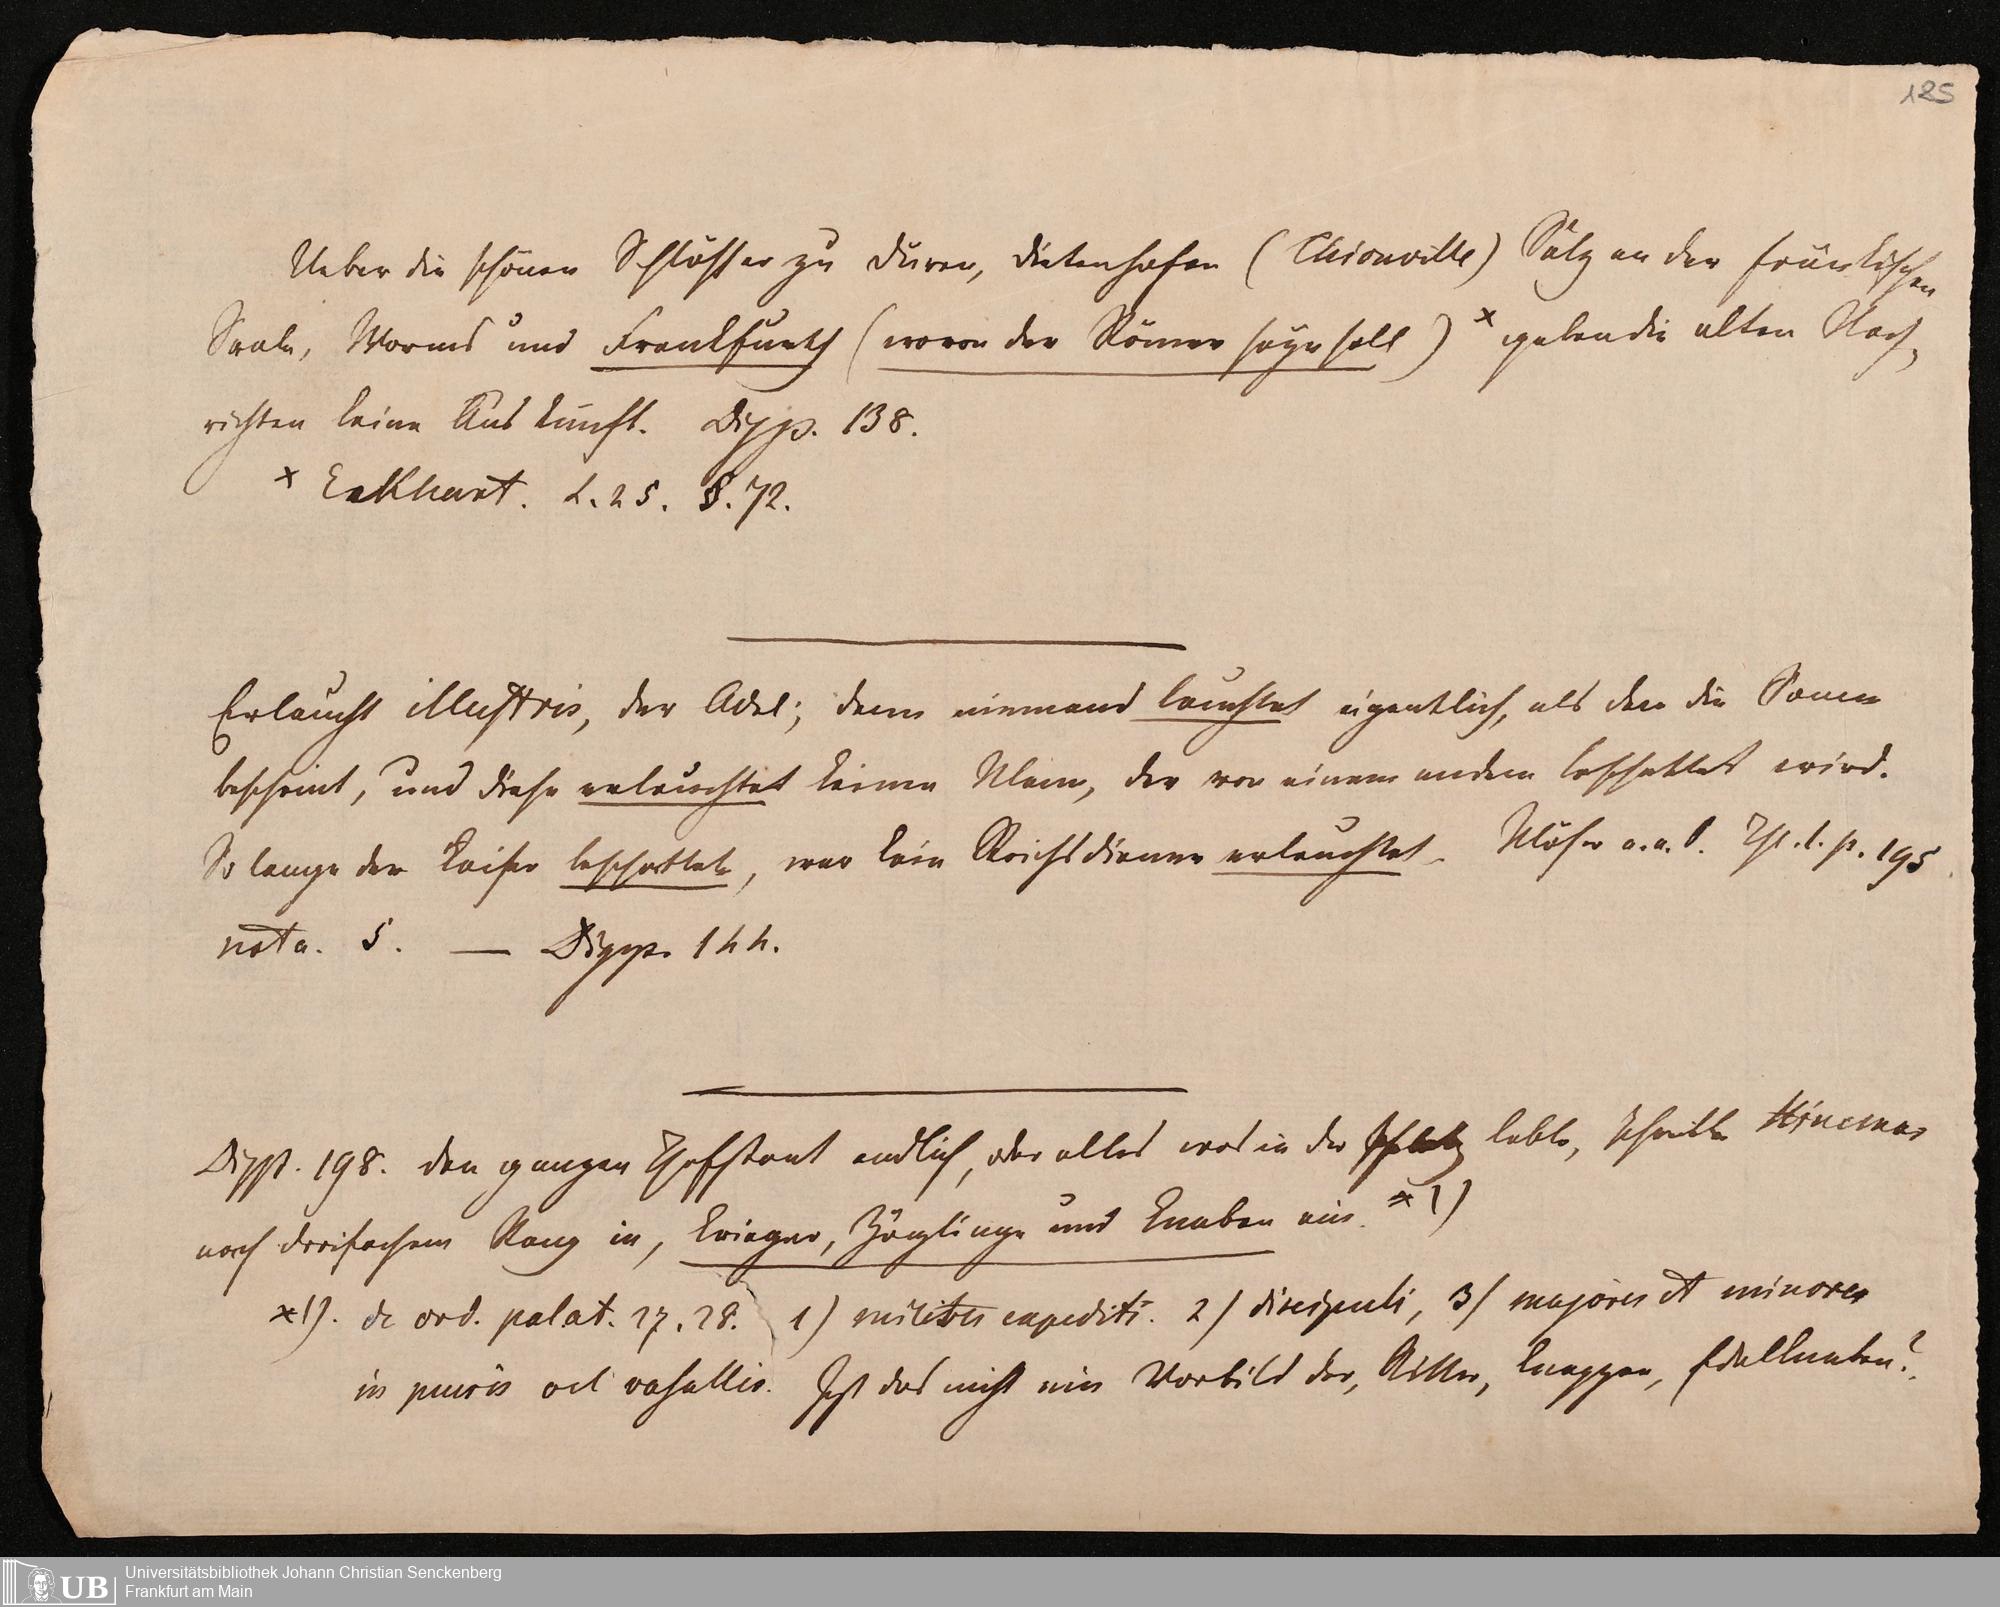 125
Ueber die schönen Schlösser zu Düren, Dietenhofen (Thionville) Sälz an der fränkischen
Saale, Worms und Frankfurth (wovon der Römer seyn soll) x geben die alten Nach-
richten keine Auskunft. Dipp. 138.
x Eckhart. L. 25. §. 72.
Erlaucht illustris, der Adel; denn niemand leuchtet eigentlich, als den die Sonne
bescheint, und diese erleuchtet keinen Mann, der von einem andern beschattet wird.
So lange der Kaiser beschattete, war kein Reichsdiener erleuchtet. Möser a. a. O. Th. 1. p. 195
nota. 5. — Dipp. 144.
Dipp. 198. den ganzen Hofstaat endlich, oder alles was in der Pfalz lebte, theilte Hincmar
nach dreifachem Rang in, Krieger, Zöglinge und Knaben ein. *1)
*1). de ord. palat. 27. 28. 1) milites expediti. 2) discipuli, 3) majores et minores
in pueris vel vasallis. Ist das nicht ein Vorbild der, Ritter, Knappen, Edelknaben?
Universitätsbibliothek Johann Christian Senckenberg
UB Frankfurt am Main